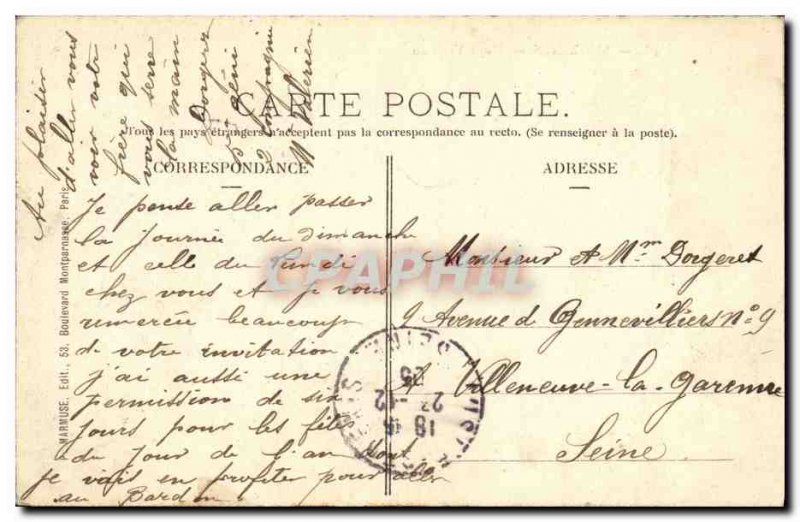 CARTE POSTALE.
Tous les pays étrangers n'acceptent pas la correspondance au recto. (Se renseigner à la poste).
CORRESPONDANCE
ADRESSE
Je pense aller passer
la Journée du Dimanche
et celle du Lundi
chez vous et je vous
remercie beaucoup
de votre invitation
j'ai aussi une
permission de six
jours pour les fêtes
du Jour de l'an dont
je vais en profiter pour aller
au
Au plaisir
d'aller vous
voir votre
frère qui
vous serre
la main
Dorgeret
5e Génie
2 Compagnie
Monsieur et Mm Dorgeret
9 Avenue d Gennevilliers No 9
Villeneuve-la-Garenne
Seine
MARMUSE, Edit., 53, Boulevard Montparnasse, Paris
CPAPHIL
SEINE
18
23 -12